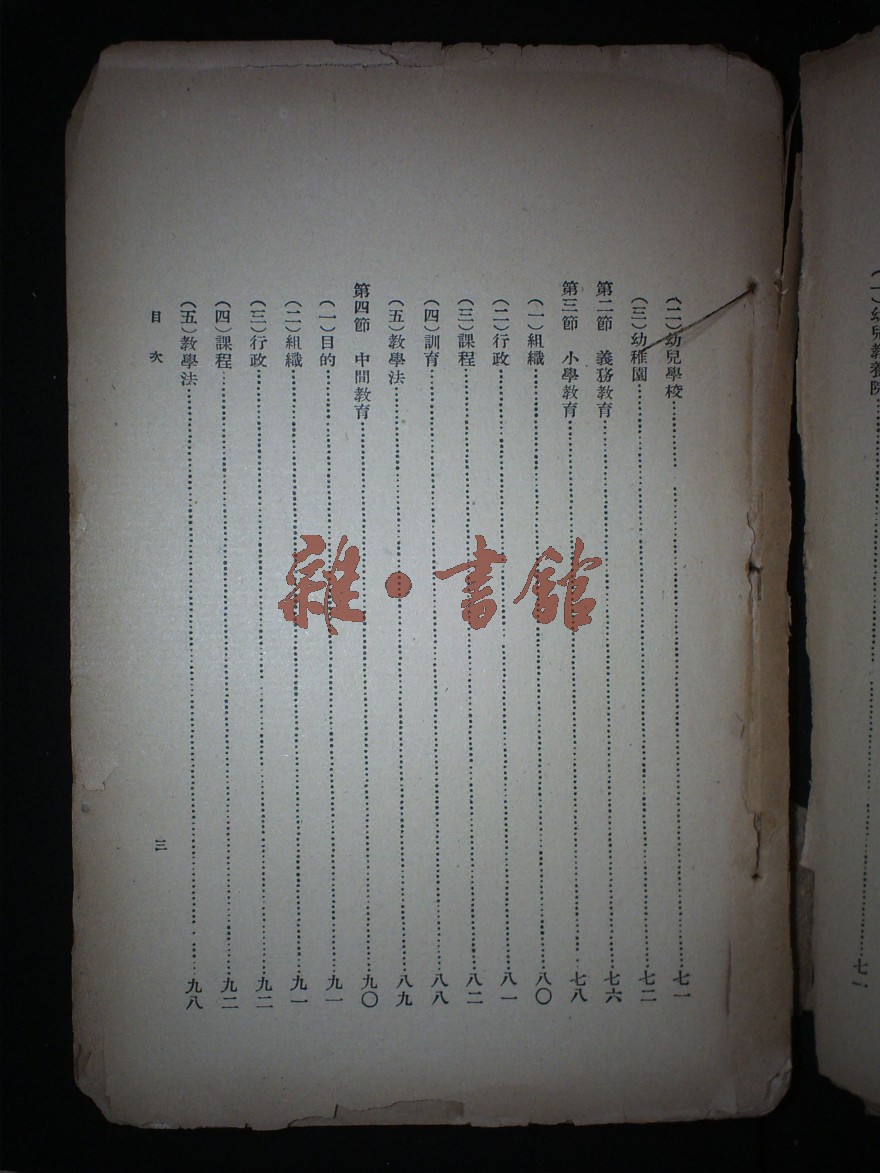 (一)幼兒教養院……七一
(二)幼兒學校……七一
(三)幼稚園……七二
第二節 義務教育……七六
第三節 小學教育……七八
(一)組織……八〇
(二)行政……八一
(三)課程……八二
(四)訓育……八八
(五)教學法……八九
第四節 中間教育……九〇
(一)目的……九一
(二)組織……九一
(三)行政……九二
(四)課程……九二
(五)教學法……九八
目次
三
雜·書館